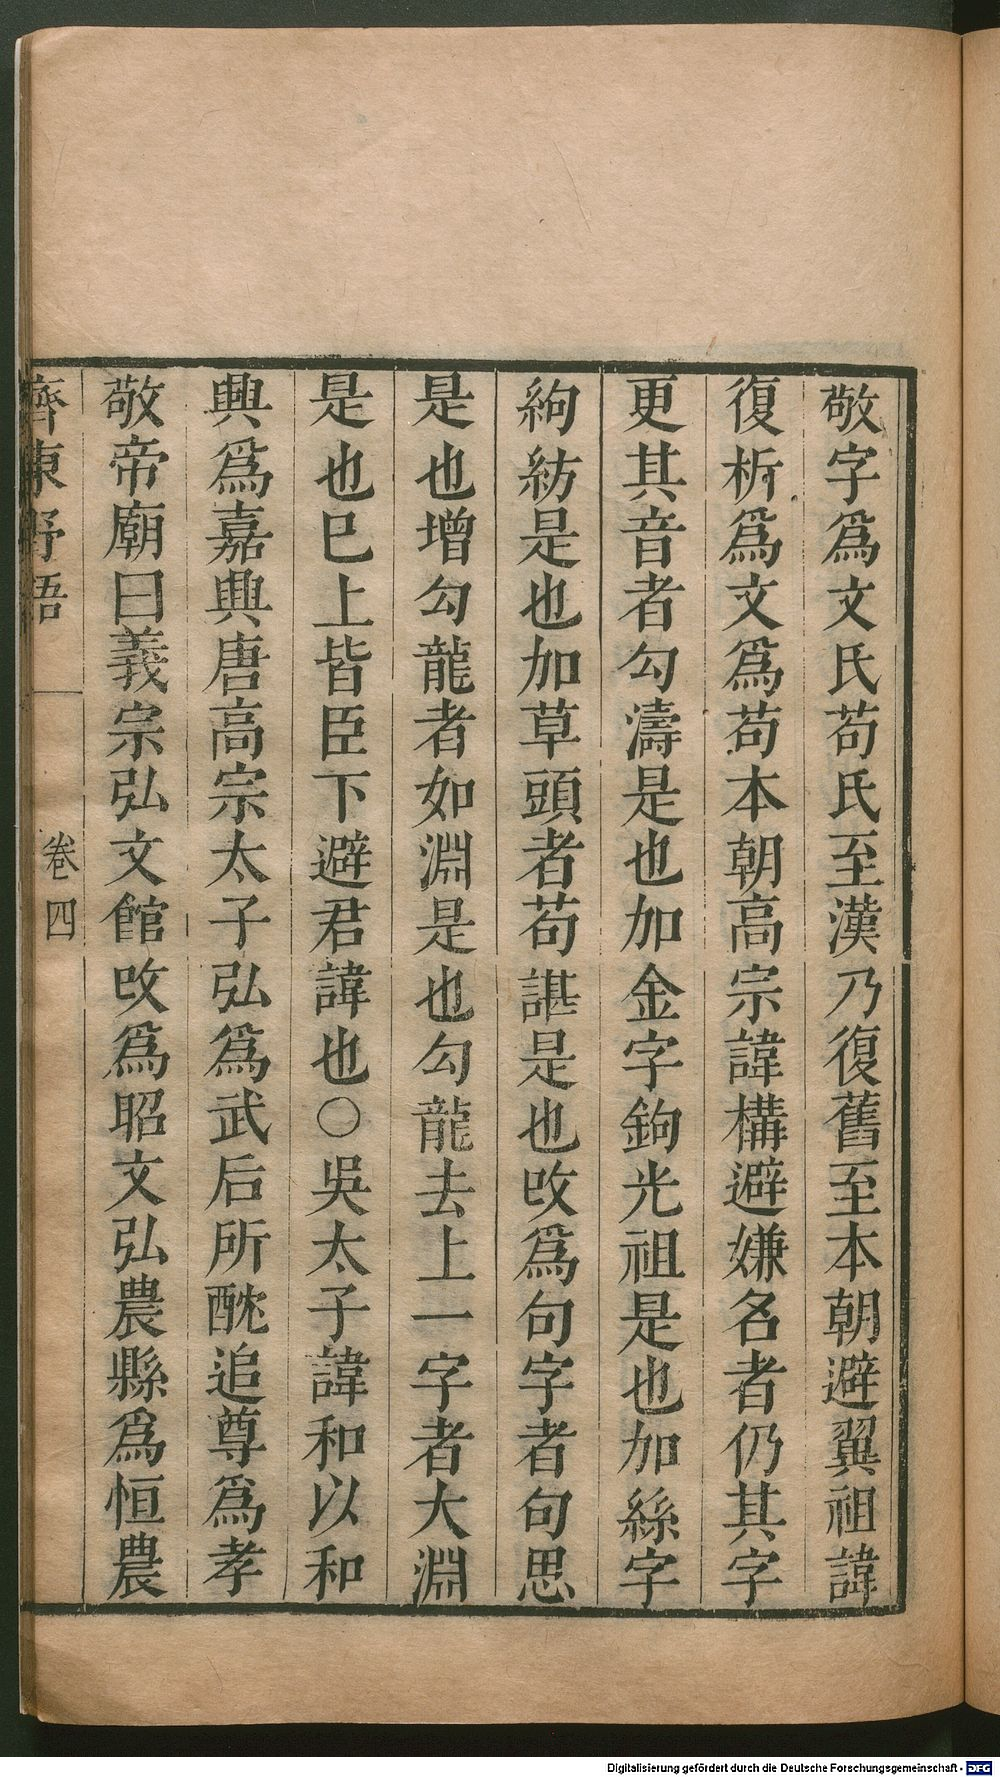 敬字爲文氏茍氏至漢乃復舊至本朝避翼祖諱
復析爲文爲茍本朝高宗諱構避嫌名者仍其字
更其音者勾濤是也加金字鉤光祖是也加絲字
絇紡是也加草頭者茍諶是也改爲句字者句思
是也增勾龍者如淵是也勾龍去上一字者大淵
是也巳上皆臣下避君諱也○吳太子諱和以和
興爲嘉興唐高宗太子弘爲武后所酖追尊爲孝
敬帝廟曰義宗弘文館改爲昭文弘農縣爲恒農
齊東野語 卷四
Digitalisierung gefördert durch die Deutsche Forschungsgemeinschaft - DFG